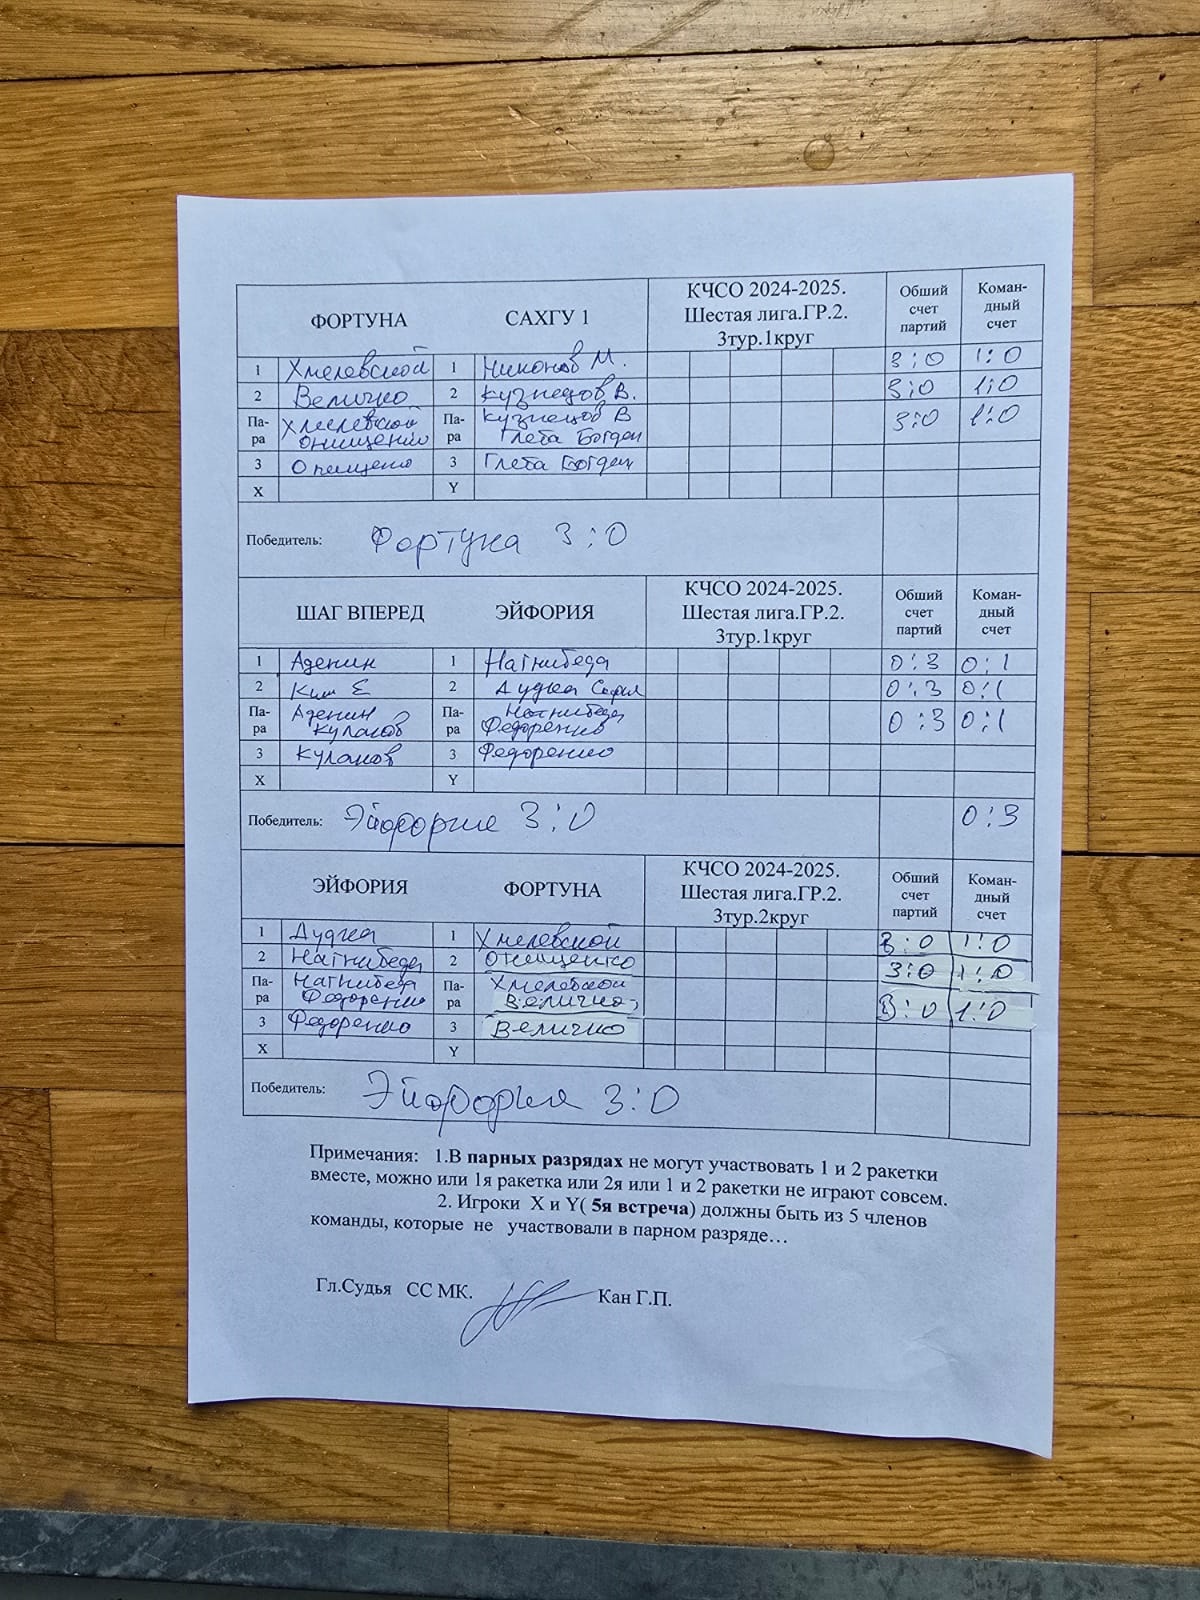 ФОРТУНА САХГУ 1 КЧСО 2024-2025. Шестая лига.ГР.2. 3тур.1круг Обший счет партий Коман-дный счет
1 Хмелевской 1 Никонов М. 3:0 1:0
2 Величко 2 Кузнецов В. 3:0 1:0
Па-ра Хмелевской Онищенко Па-ра Кузнецов В Глеба Богдан 3:0 1:0
3 Онищенко 3 Глеба Богдан
X Y
Победитель: Фортуна 3:0
ШАГ ВПЕРЕД ЭЙФОРИЯ КЧСО 2024-2025. Шестая лига.ГР.2. 3тур.1круг Обший счет партий Коман-дный счет
1 Аденин 1 Нагнибеда 0:3 0:1
2 Ким Е 2 Дудка Софья 0:3 0:1
Па-ра Аденин Кулаков Па-ра Нагнибеда Федоренко 0:3 0:1
3 Кулаков 3 Федоренко
X Y
Победитель: Эйфория 3:0 0:3
ЭЙФОРИЯ ФОРТУНА КЧСО 2024-2025. Шестая лига.ГР.2. 3тур.2круг Обший счет партий Коман-дный счет
1 Дудка 1 Хмелевской 3:0 1:0
2 Нагнибеда 2 Онищенко 3:0 1:0
Па-ра Нагнибеда Федоренко Па-ра Хмелевской Величко 3:0 1:0
3 Федоренко 3 Величко
X Y
Победитель: Эйфория 3:0
Примечания: 1.В парных разрядах не могут участвовать 1 и 2 ракетки
вместе, можно или 1я ракетка или 2я или 1 и 2 ракетки не играют совсем.
2. Игроки X и Y( 5я встреча) должны быть из 5 членов
команды, которые не участвовали в парном разряде…
Гл.Судья СС МК. Кан Г.П.